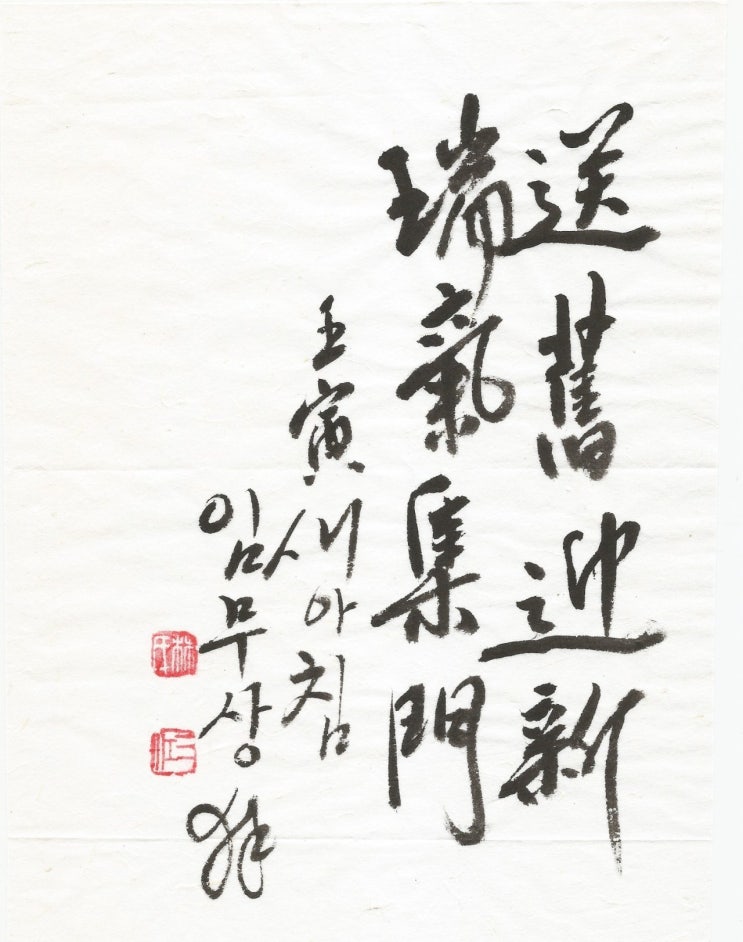 送舊迎新
瑞氣集門
壬寅새아침
임무상
林